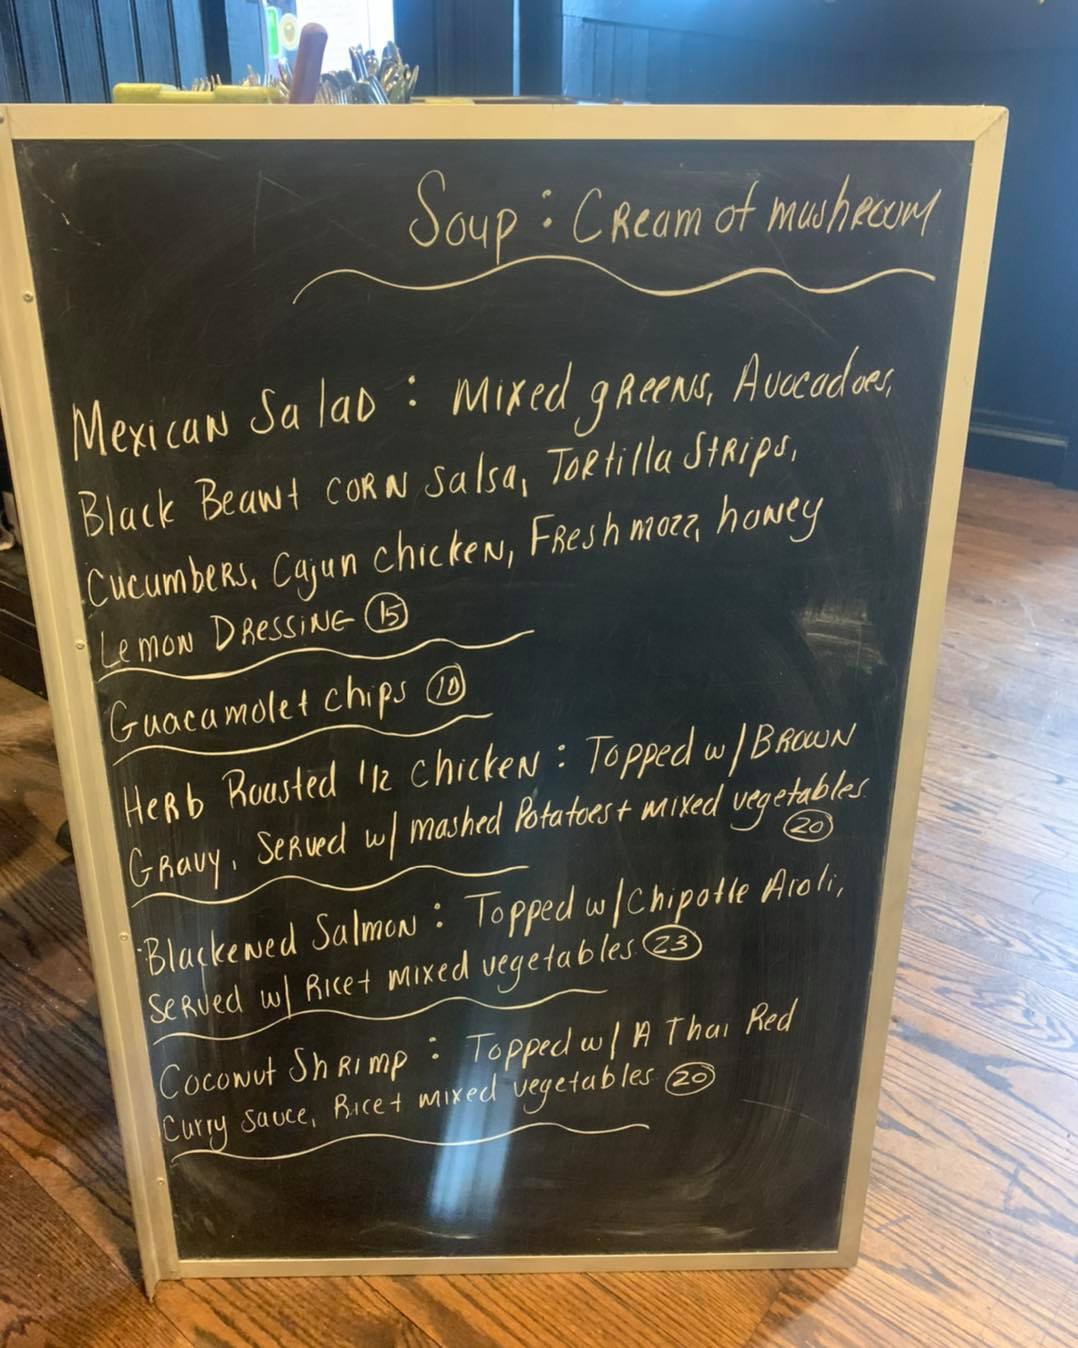 Soup : Cream of mushroom
Mexican Salad : Mixed greens, Avocadoes,
Black Bean + corn salsa, Tortilla Strips,
Cucumbers, Cajun chicken, Fresh mozz, honey
Lemon Dressing 15
Guacamole + chips 10
Herb Roasted 1/2 chicken : Topped w/ Brown
Gravy, Served w/ mashed Potatoes + mixed vegetables
20
Blackened Salmon : Topped w/ Chipotle Aioli,
Served w/ Rice + mixed vegetables 23
Coconut Shrimp : Topped w/ A Thai Red
Curry Sauce, Rice + mixed vegetables 20